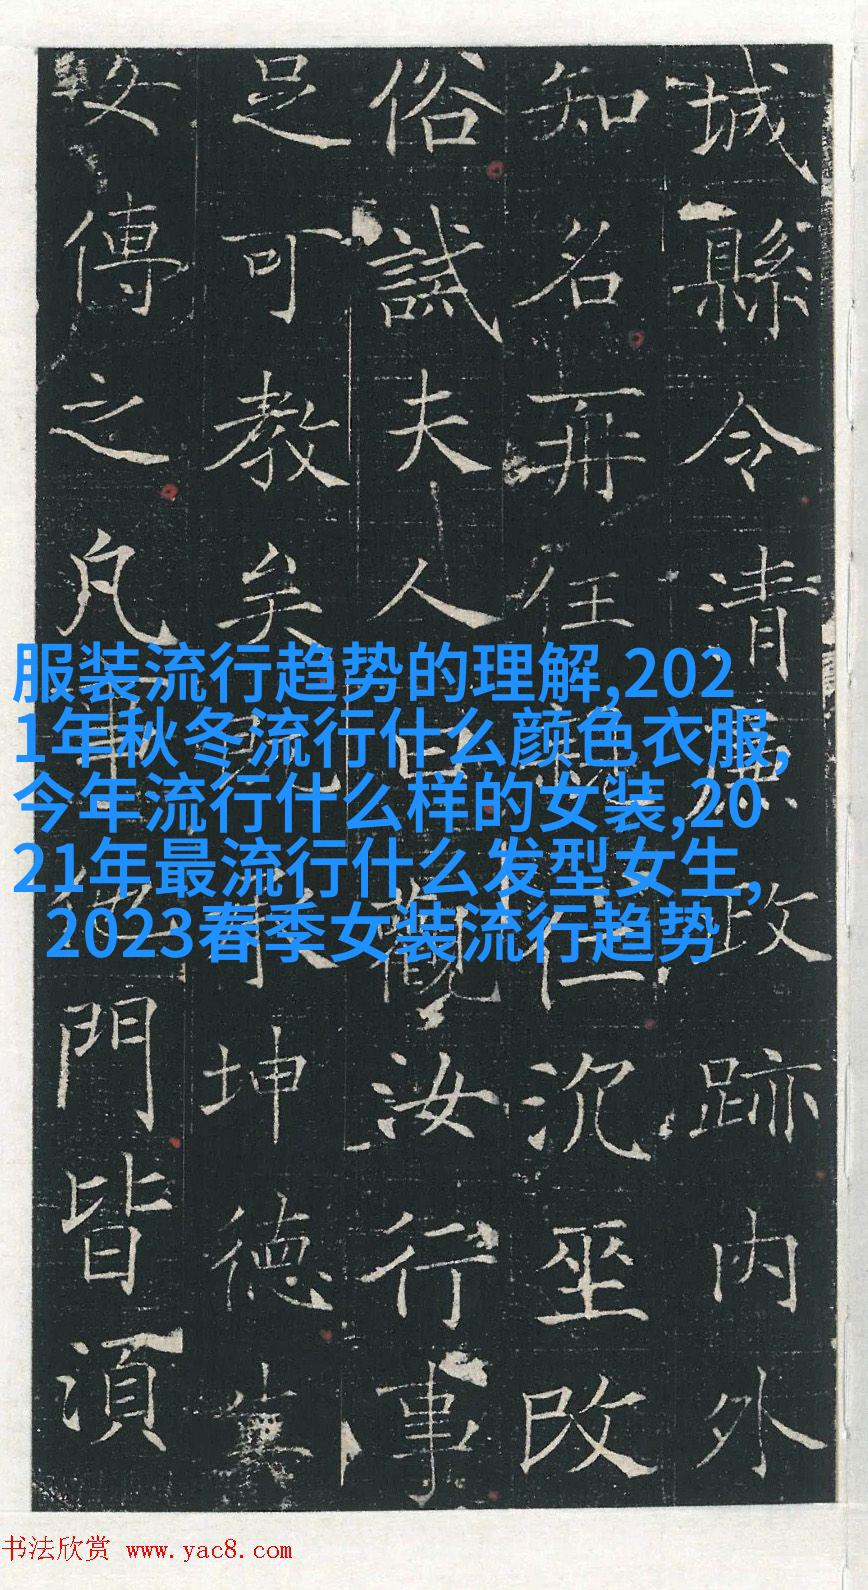 城縣令清肅政跡内外
知名再任 仁沉坐改
俗誡夫人曰 觀汝行事
足可教矣 坤德
女傳之凡 門皆須
服装流行趋势的理解,202
1年秋冬流行什么颜色衣服,
今年流行什么样的女装,20
21年最流行什么发型女生,
2023春季女装流行趋势
书法欣赏 www.yac8.com